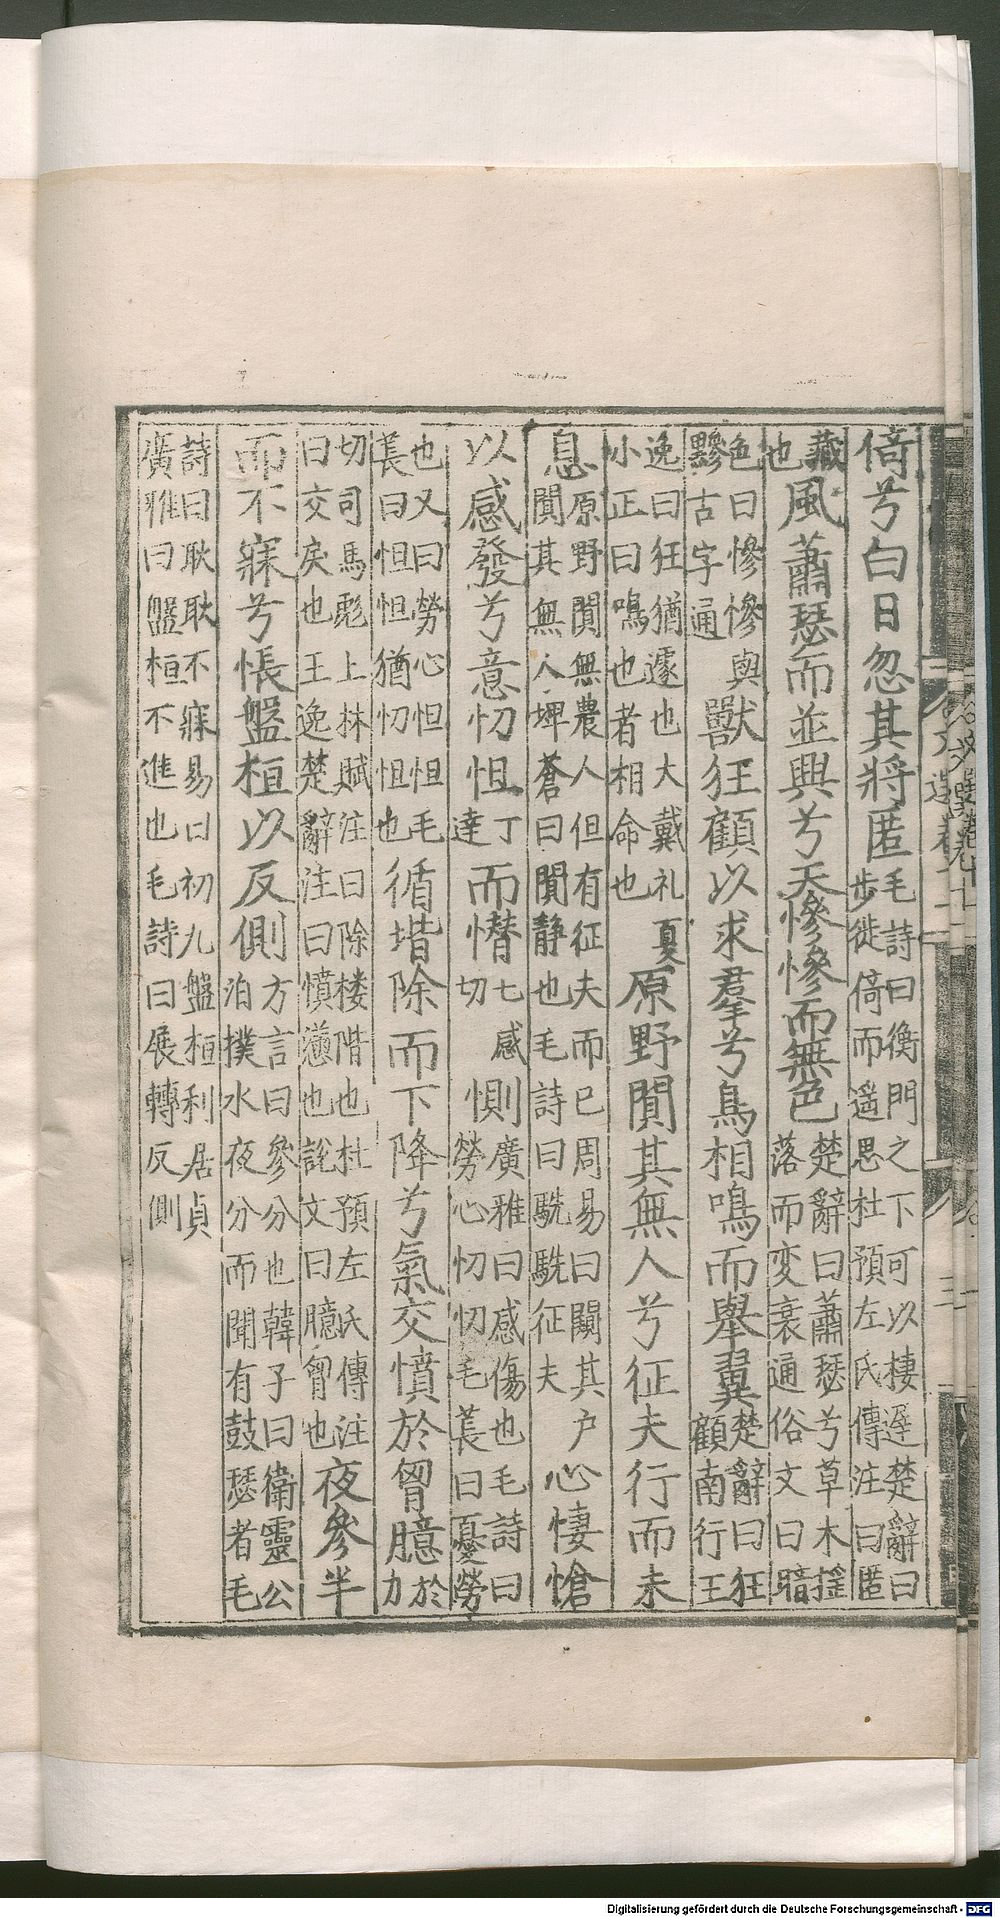 倚兮白日忽其將匿毛詩曰衡門之下可以棲遲楚辭曰步徙倚而遥思杜預左氏傳注曰匿
藏也風蕭瑟而並興兮天慘慘而無色楚辭曰蕭瑟兮草木摇落而变衰通俗文曰暗
色曰慘慘與黲古字通獸狂顧以求羣兮鳥相鳴而舉翼楚辭曰狂顧南行王
逸曰狂猶遽也大戴礼夏小正曰鳴也者相命也原野闃其無人兮征夫行而未
息原野闃無農人但有征夫而已周易曰闚其户闃其無人埤蒼曰闃静也毛詩曰駪駪征夫心悽愴
以感發兮意忉怛丁達而憯七感切惻廣雅曰感傷也毛詩曰勞心忉忉毛萇曰憂勞
也又曰勞心怛怛毛萇曰怛怛猶忉怛也循堦除而下降兮氣交憤於胷臆於力
切司馬彪上林賦注曰除楼階也杜預左氏傳注曰交戾也王逸楚辭注曰憤懣也說文曰臆胷也夜參半
而不寐兮悵盤桓以反側方言曰參分也韓子曰衛靈公泊濮水夜分而聞有鼓瑟者毛
詩曰耿耿不寐易曰初九盤桓利居貞廣雅曰盤桓不進也毛詩曰展轉反側
Digitalisierung gefördert durch die Deutsche Forschungsgemeinschaft - DFG